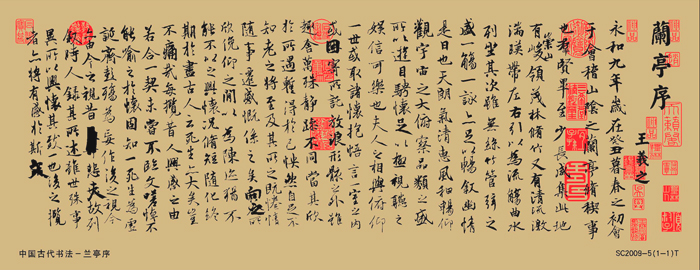 蘭亭序
王羲之
永和九年歲在癸丑暮春之初會
于會稽山陰之蘭亭脩稧事
也群賢畢至少長咸集此地
崇山
有峻領茂林脩竹又有清流激
湍暎帶左右引以為流觴曲水
列坐其次雖無絲竹管弦之
盛一觴一詠亦足以暢敘幽情
是日也天朗氣清惠風和暢仰
觀宇宙之大俯察品類之盛
所以遊目騁懷足以極視聽之
娛信可樂也夫人之相與俯仰
一世或取諸懷抱悟言一室之內
或因寄所託放浪形骸之外雖
趣舍萬殊靜躁不同當其欣
於所遇蹔得於己怏然自足不
知老之將至及其所之既惓情
隨事遷感慨係之矣向之所
欣俛仰之閒以為陳迹猶不
能不以之興懷況脩短隨化終
期於盡古人云死生亦大矣豈
不痛哉每攬昔人興感之由
若合一契未嘗不臨文嗟悼不
能喻之於懷固知一死生為虛
誕齊彭殤為妄作後之視今
亦由今之視昔悲夫故列
敘時人錄其所述雖世殊事
異所以興懷其致一也後之攬
者亦將有感於斯文
中国古代书法－兰亭序
SC2009-5(1-1)T